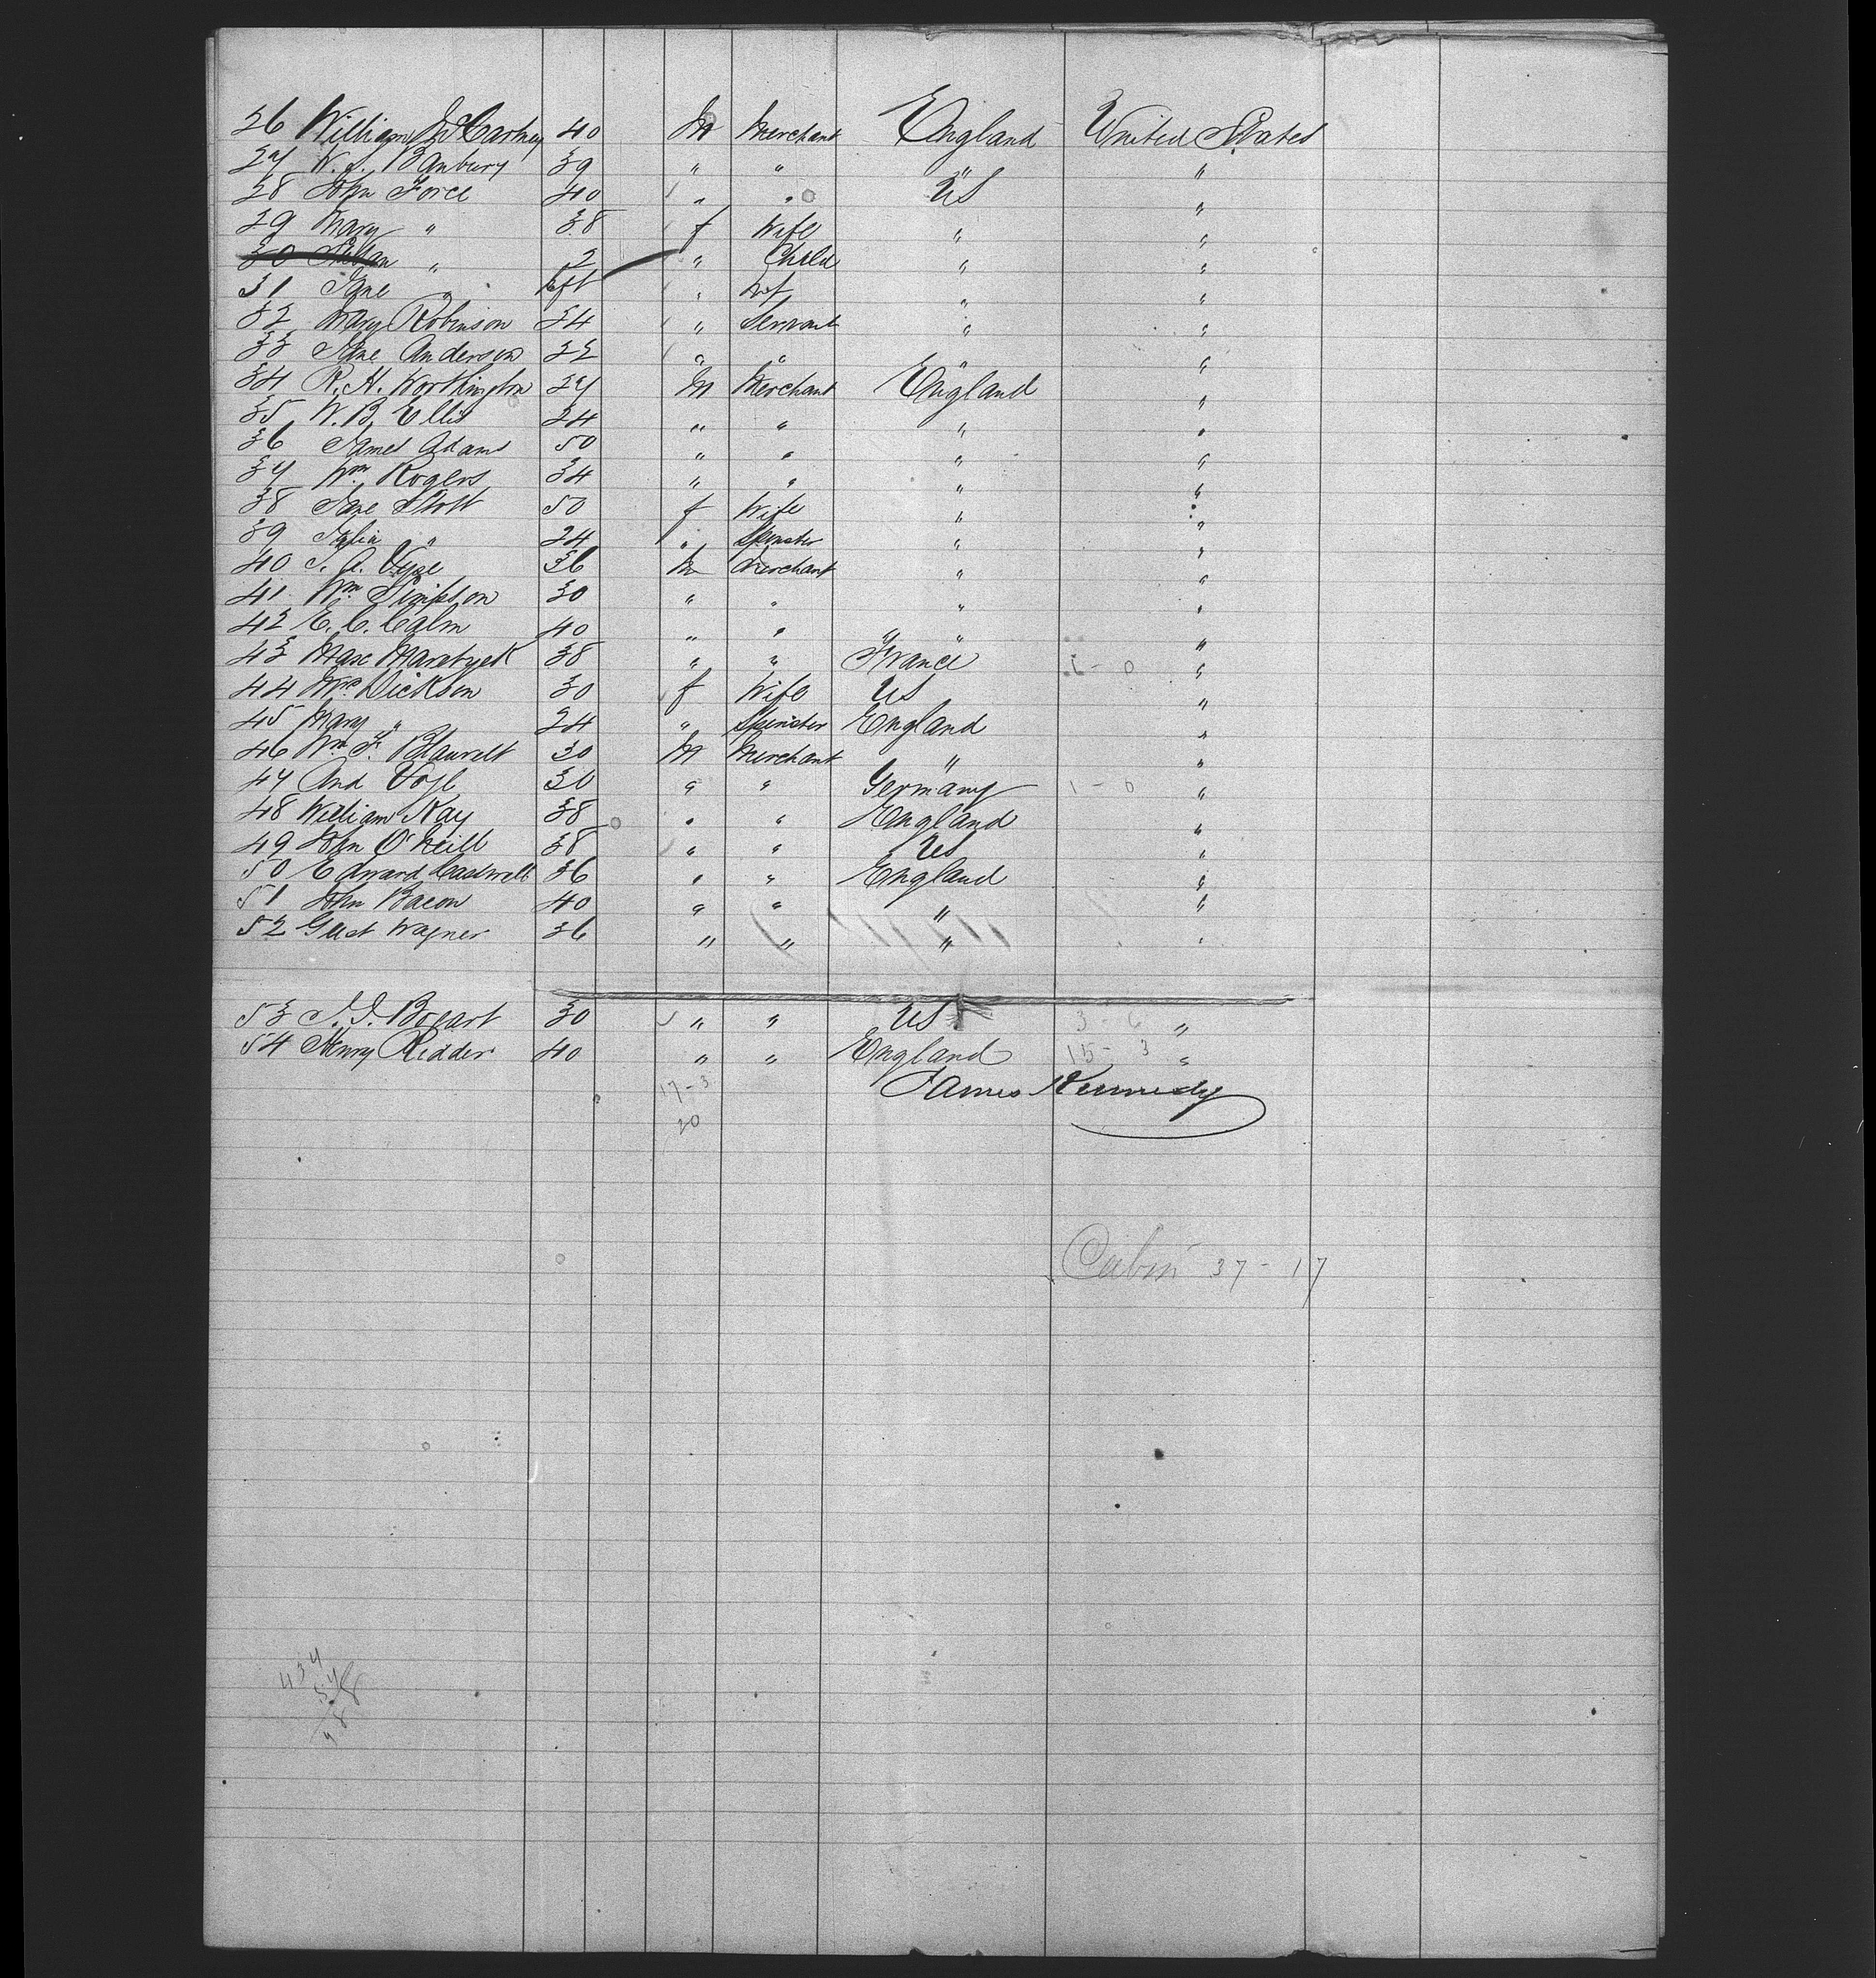 26 William McCartney 40 M Merchant England United States
27 W. J. Banbury 39 " " " "
28 John Force 40 " " US "
29 Mary " 38 f Wife " "
30 " 2 " Child " "
31 Jane " Inft " Inf " "
32 Mary Robinson 24 " Servant " "
33 Jane Anderson 22 " " " "
34 R. H. Worthington 27 M Merchant England "
35 W. B. Ellis 24 " " " "
36 James Adams 50 " " " "
37 Wm Rogers 34 " " " "
38 Jane Stott 50 f Wife " "
39 Julia " 24 " Spinster " "
40 A. Vyse 36 M Merchant " "
41 Wm Simpson 30 " " " "
42 E. C. Calm 40 " " " "
43 Max Maretzek 38 " " France 1 - 0 "
44 Mrs Dickson 30 f Wife US "
45 Mary " 24 " Spinster England "
46 Wm F. Blauvelt 30 M Merchant " "
47 And Vogl 30 " " Germany 1 - 0 "
48 William Kay 38 " " England "
49 John O'Neill 38 " " US "
50 Edward Cadwell 36 " " England "
51 John Bacon 40 " " " "
52 Gust Wagner 36 " " " "
53 J. J. Bogart 30 " " US 3 6 "
54 Henry Ridder 40 " " England 15 - 3 "
17 - 3 James Kennedy
20
Cabin 37 - 17